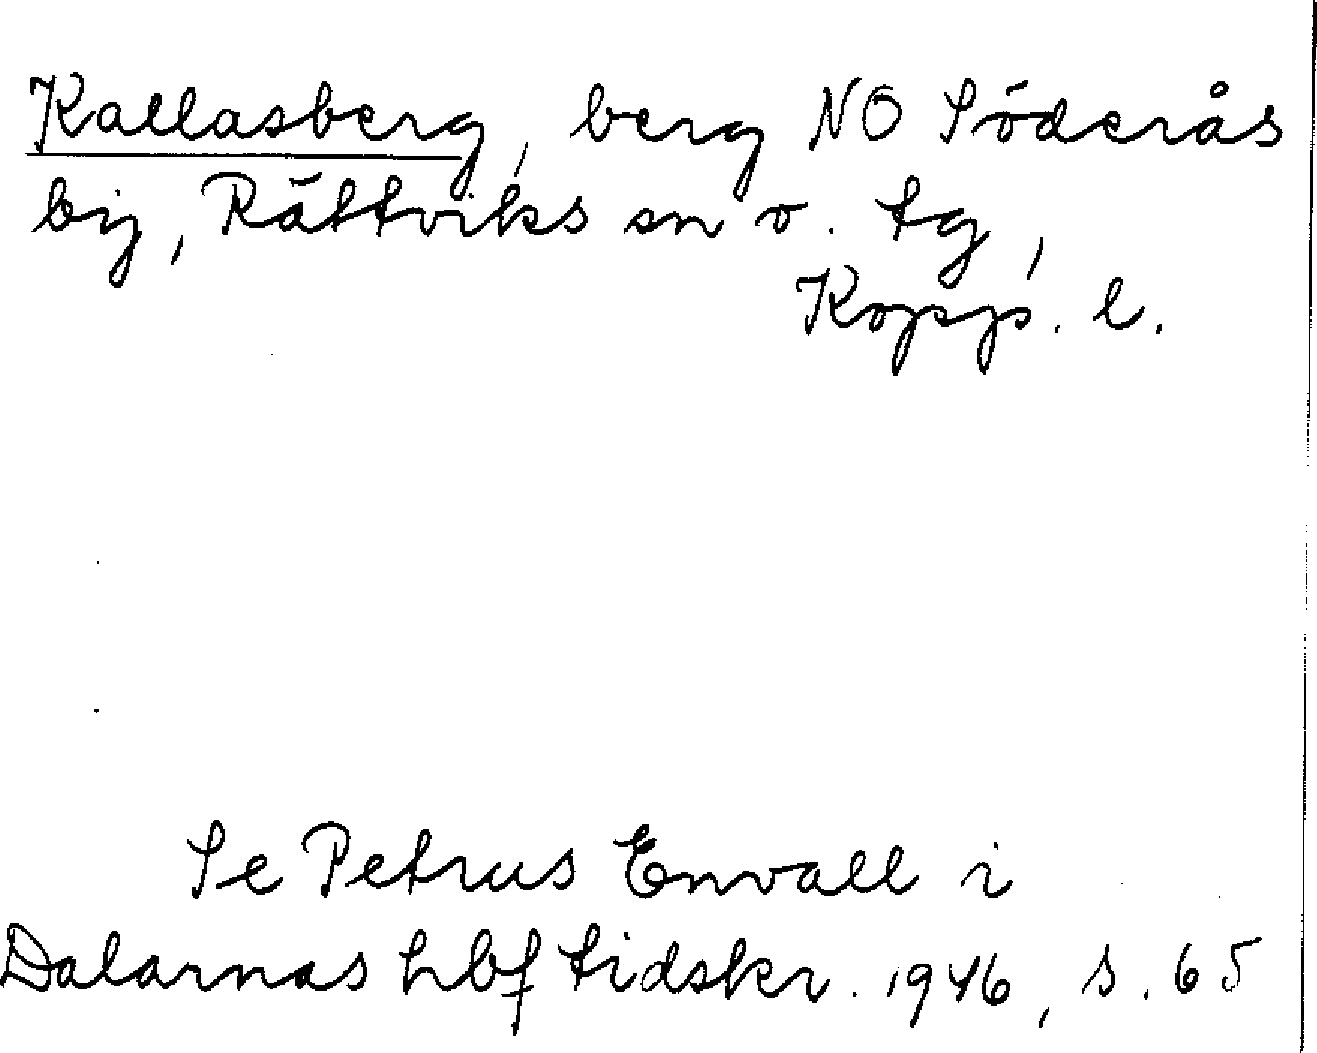 Kallasberg, berg NO Söderås
by, Rättviks sn o. tg,
Kopp. l.
Se Petrus Envall i
Dalarnas hbf tidskr. 1946, s. 65